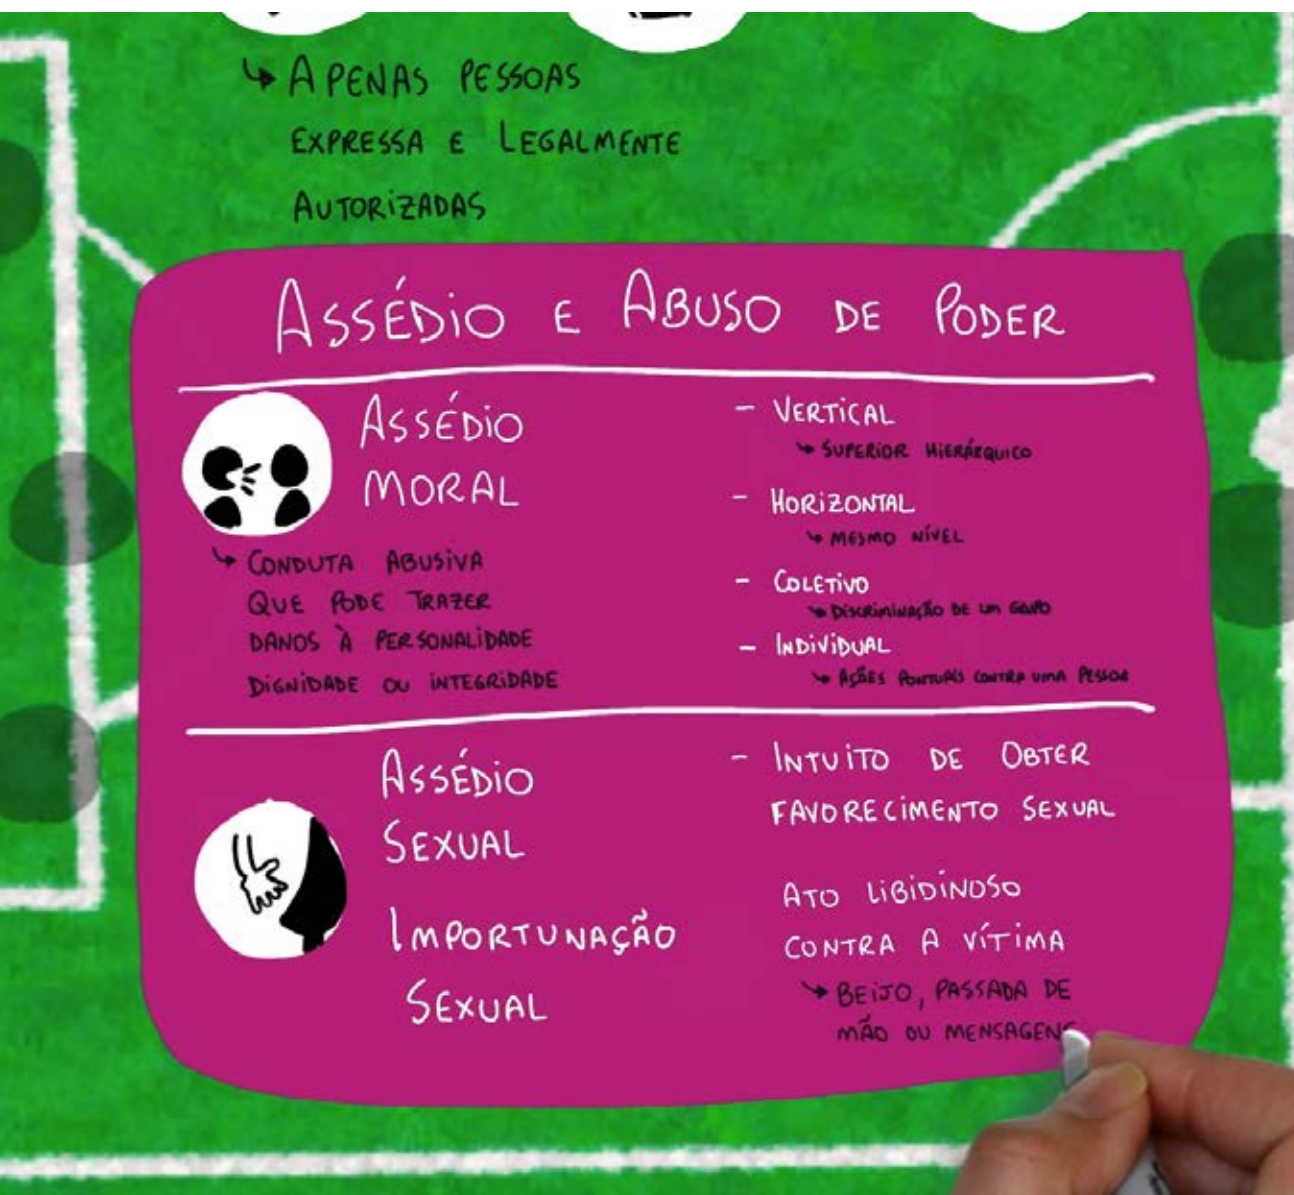 ↳ APENAS PESSOAS
EXPRESSA E LEGALMENTE
AUTORIZADAS
ASSÉDIO E ABUSO DE PODER
ASSÉDIO
MORAL
↳ CONDUTA ABUSIVA
QUE PODE TRAZER
DANOS À PERSONALIDADE
DIGNIDADE OU INTEGRIDADE
- VERTICAL
↳ SUPERIOR HIERÁRQUICO
- HORIZONTAL
↳ MESMO NÍVEL
- COLETIVO
↳ DISCRIMINAÇÃO DE UM GRUPO
- INDIVIDUAL
↳ AÇÕES PONTUAIS CONTRA UMA PESSOA
ASSÉDIO
SEXUAL
- INTUITO DE OBTER
FAVORECIMENTO SEXUAL
IMPORTUNAÇÃO
SEXUAL
ATO LIBIDINOSO
CONTRA A VÍTIMA
↳ BEIJO, PASSADA DE
MÃO OU MENSAGENS